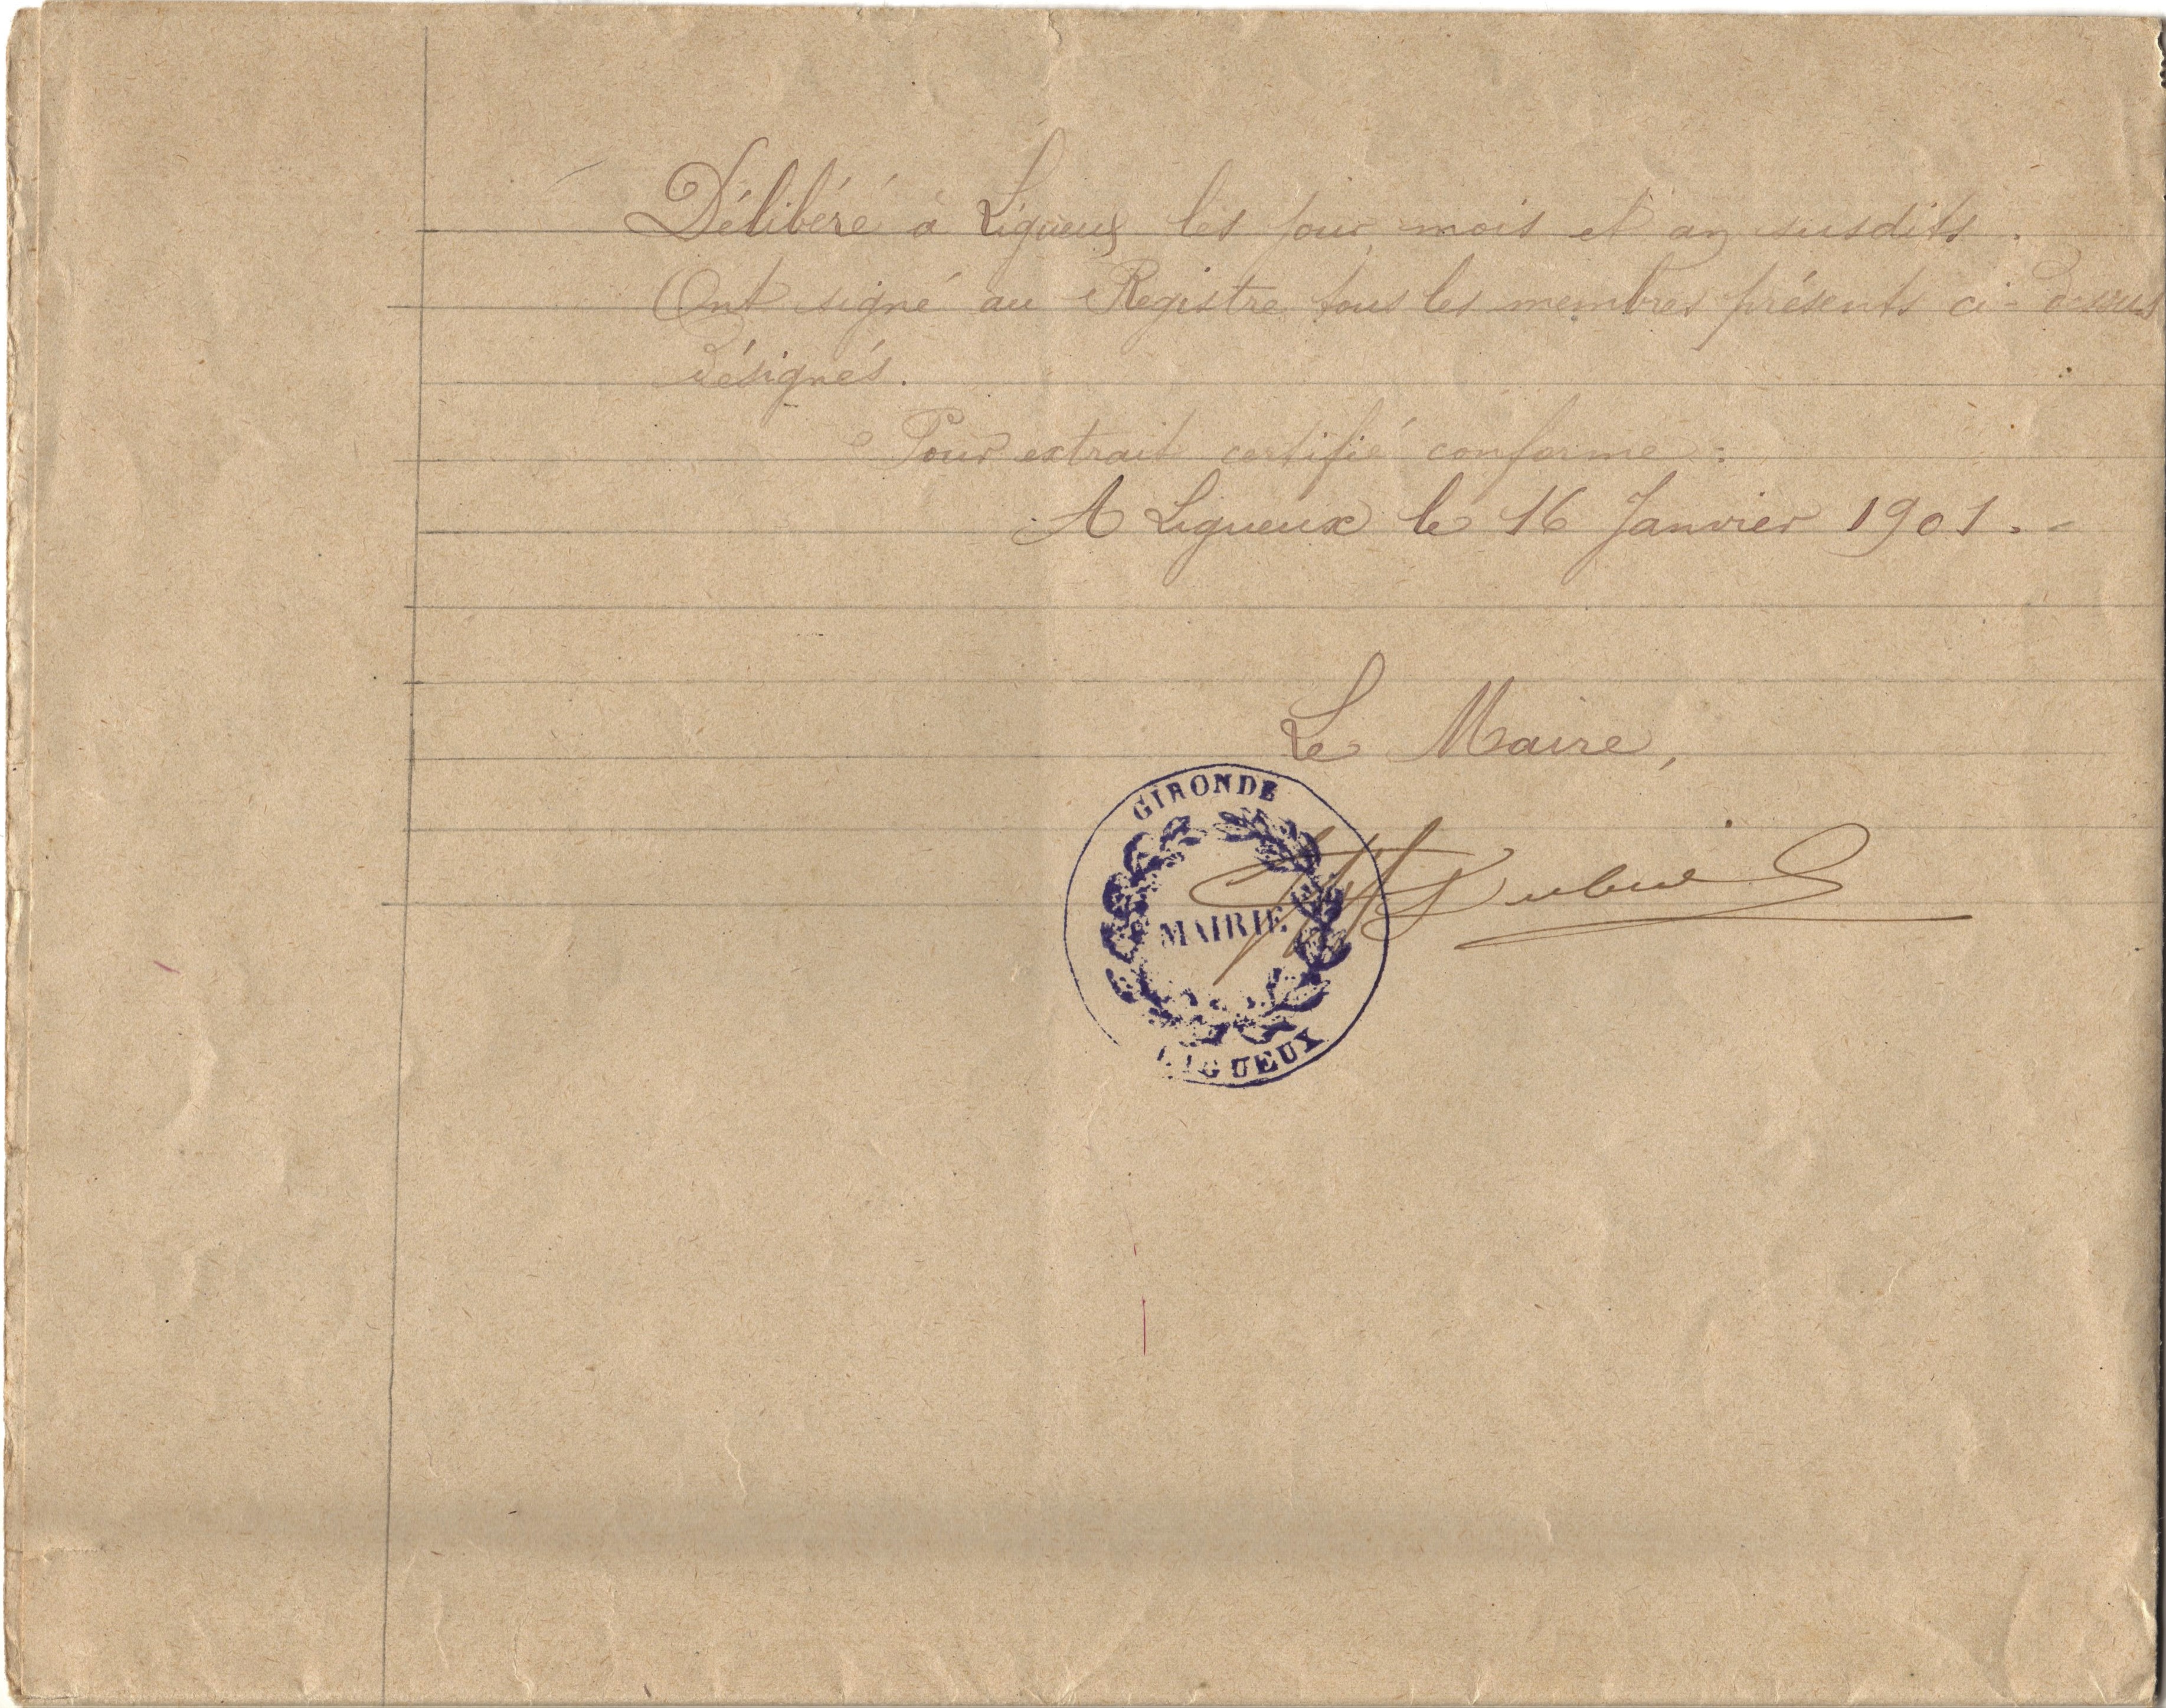 Délibéré à Ligueux les jour, mois et an susdits.
Ont signé au Registre tous les membres présents ci-dessus
désignés.
Pour extrait certifié conforme :
A Ligueux le 16 Janvier 1901.-
Le Maire,
GIRONDE
MAIRIE
LIGUEUX